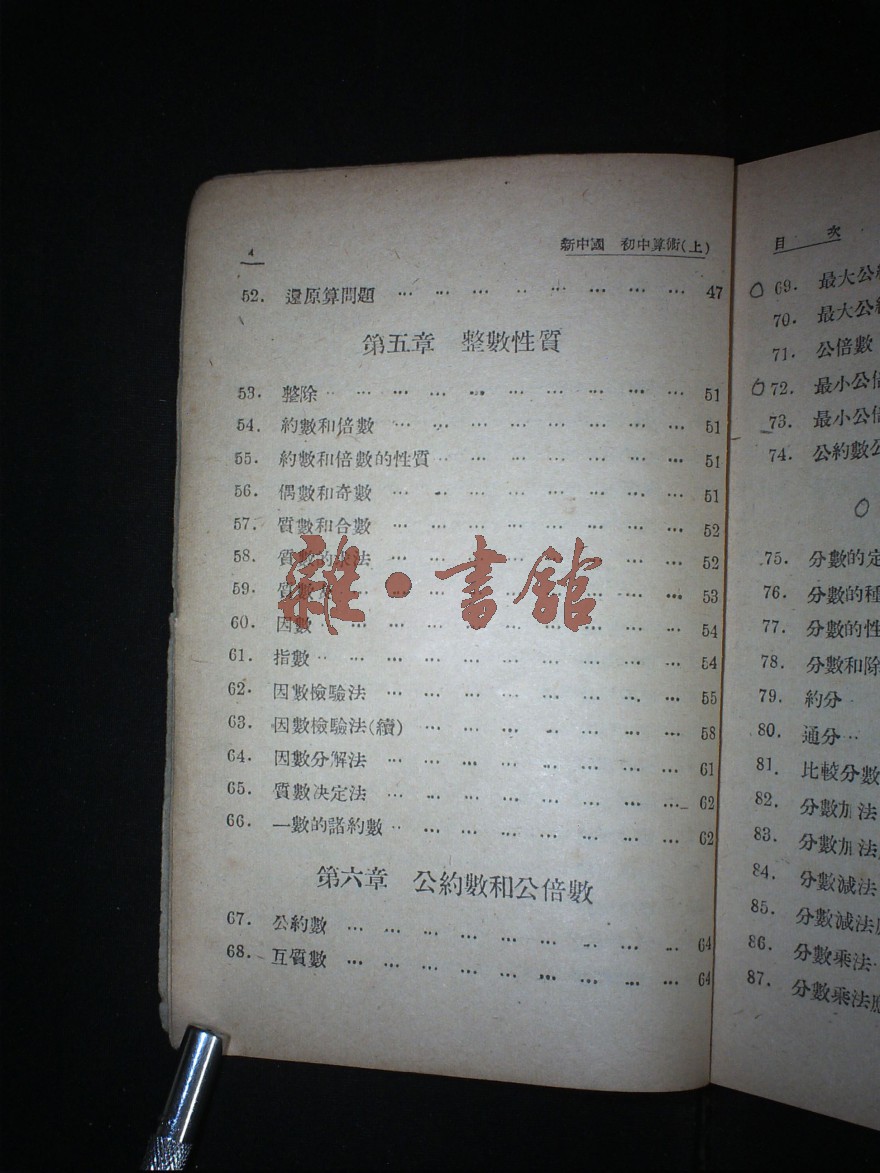 4
新中國 初中算術(上)
52. 還原算問題 … … … … … … … … 47
第五章 整數性質
53. 整除 … … … … … … … … … … 51
54. 約數和倍數 … … … … … … … … 51
55. 約數和倍數的性質 … … … … … … … 51
56. 偶數和奇數 … … … … … … … … 51
57. 質數和合數 … … … … … … … … 52
58. 質數的求法 … … … … … … … … 52
59. 質數表 … … … … … … … … 53
60. 因數 … … … … … … … … … … 54
61. 指數 … … … … … … … … … … 54
62. 因數檢驗法 … … … … … … … … 55
63. 因數檢驗法(續) … … … … … … … 58
64. 因數分解法 … … … … … … … … 61
65. 質數决定法 … … … … … … … … 62
66. 一數的諸約數 … … … … … … … … 62
第六章 公約數和公倍數
67. 公約數 … … … … … … … … … 64
68. 互質數 … … … … … … … … … 64
雜·書館
目 次
69. 最大公約
70. 最大公約
71. 公倍數
72. 最小公倍
73. 最小公倍
74. 公約數公
75. 分數的定
76. 分數的種
77. 分數的性
78. 分數和除
79. 約分
80. 通分
81. 比較分數
82. 分數加法
83. 分數加法
84. 分數減法
85. 分數減法應
86. 分數乘法
87. 分數乘法應